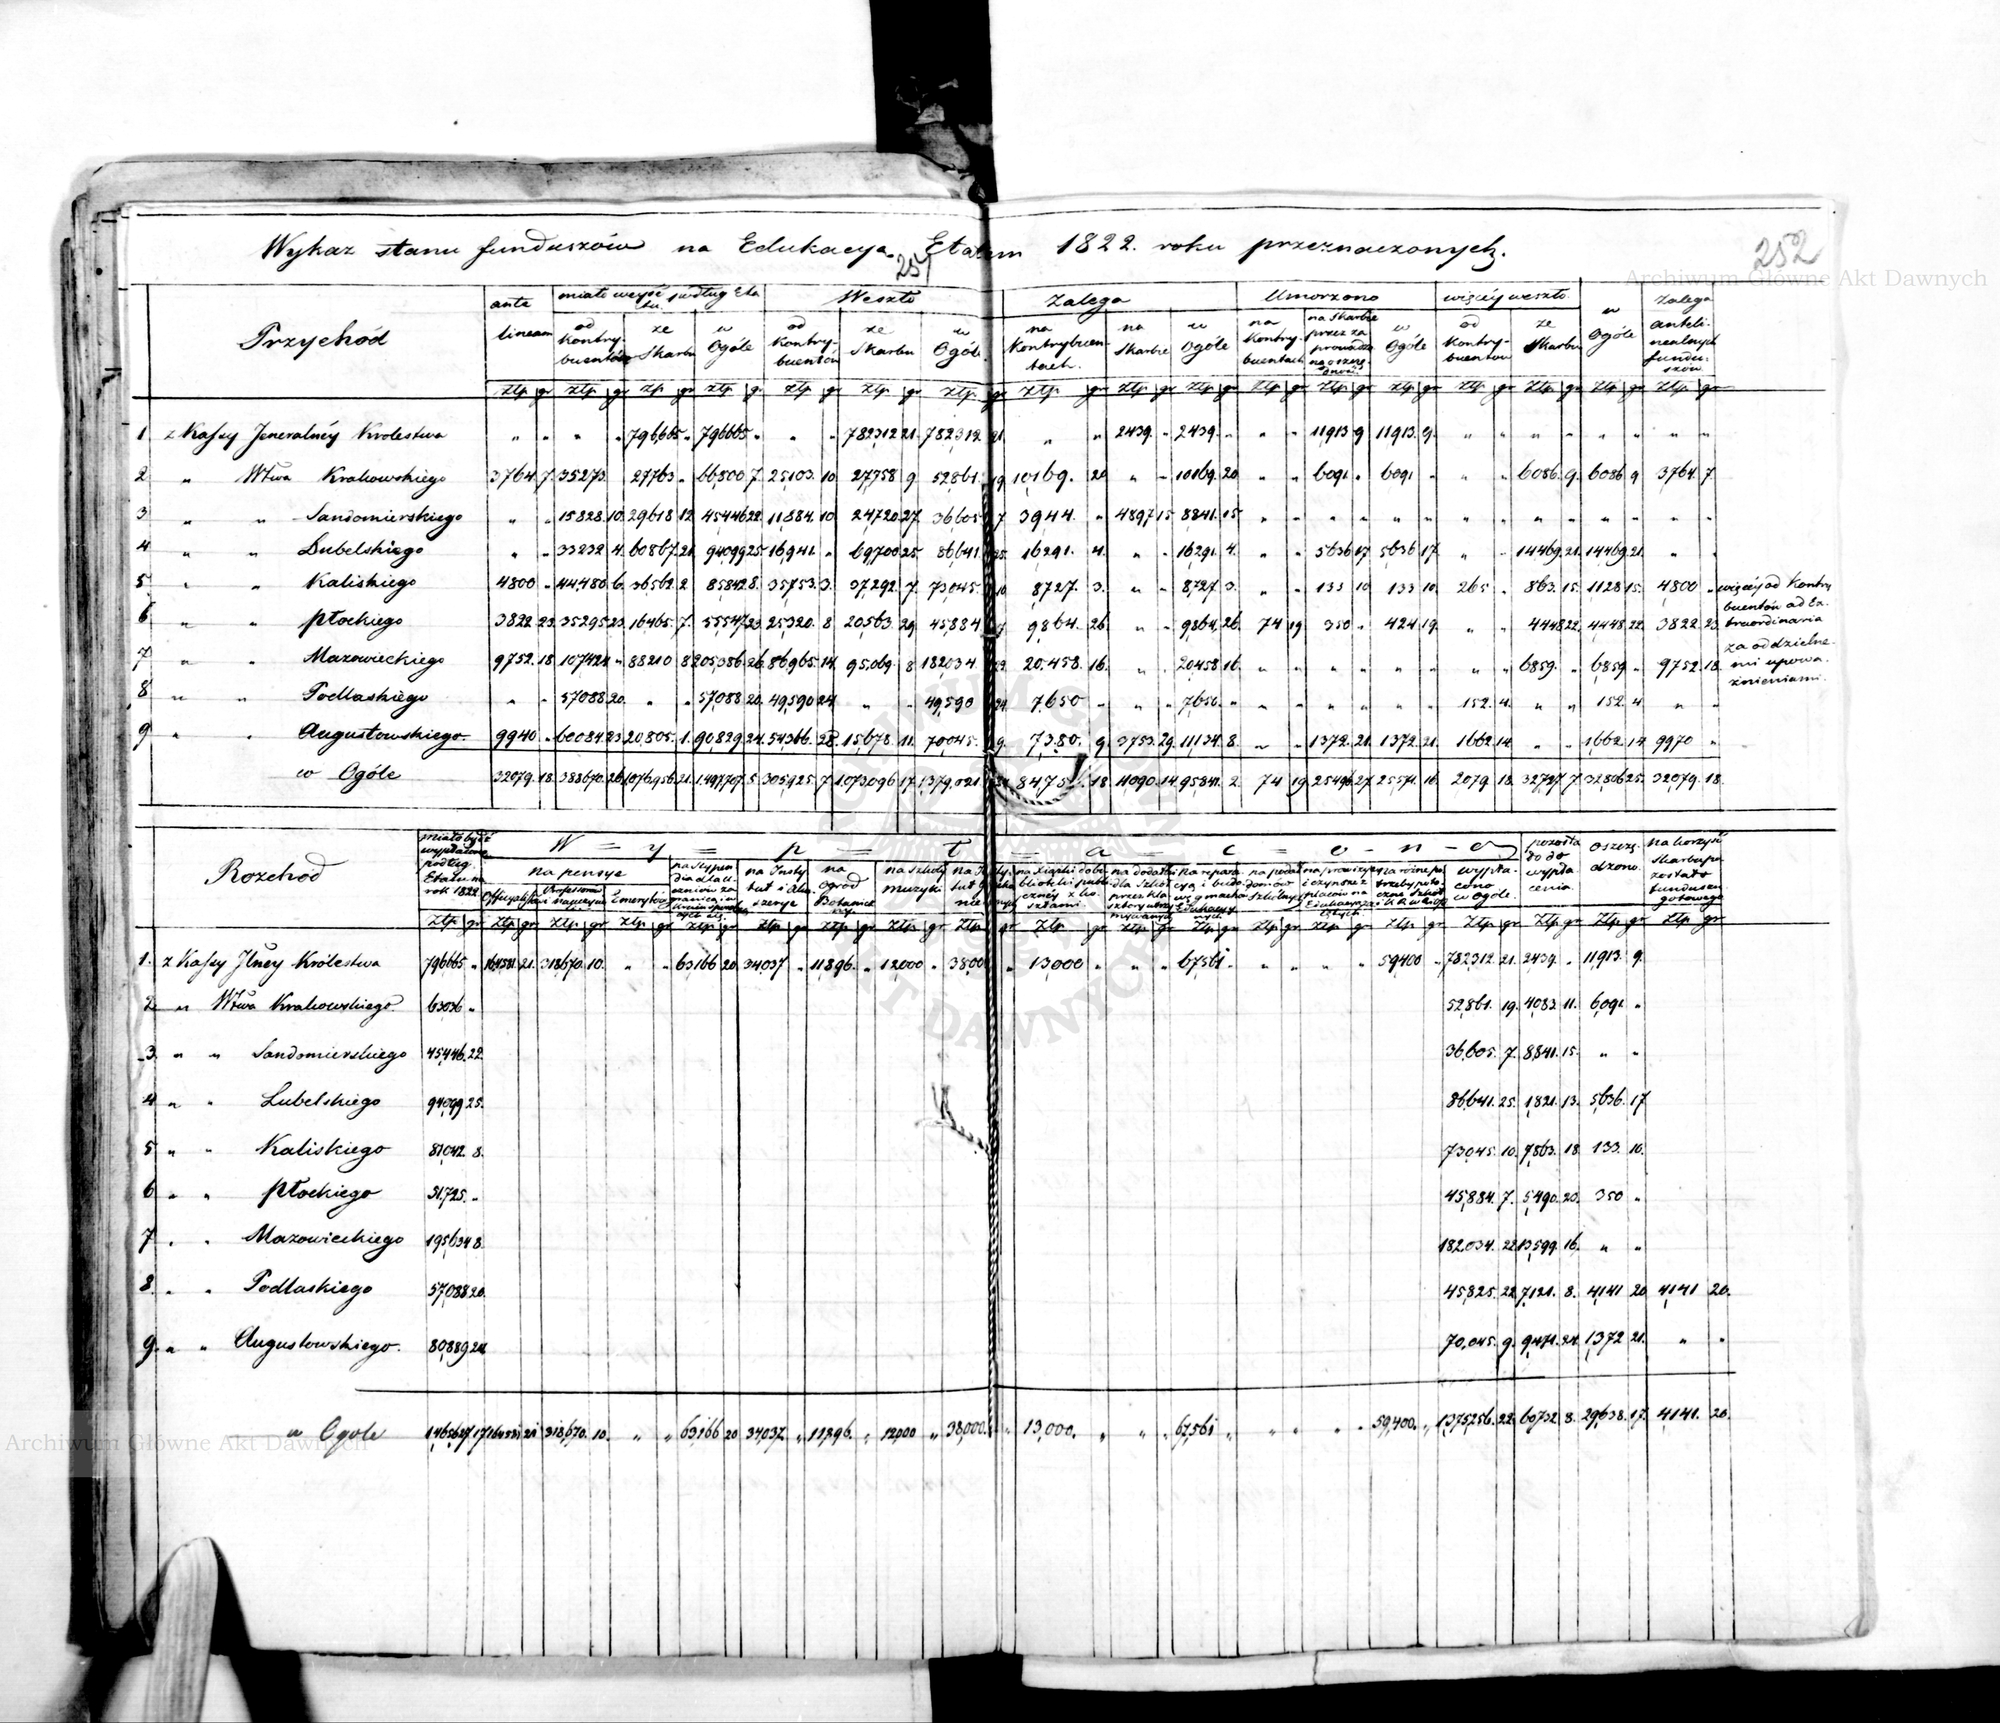 Wykaz stanu funduszów na Edukacya Etatem 1822. roku przeznaczonych.
257
252
Archiwum Główne Akt Dawnych
Przychód
ante lineam
miało weyść podług Eta tu
od kontry- buentów
ze Skarbu
w Ogóle
Weszło
od kontry- buentów
ze Skarbu
w Ogóle
Zalega
na kontrybuen- tach.
na Skarbie
w Ogóle
Umorzono
na kontry- buentach
w Ogóle
więcéy weszło
od kontry- buentów
ze Skarbu
w Ogóle
Zalega anteli- nealnych fundu- szów
ztp gr ztp gr ztp gr ztp gr ztp gr ztp gr ztp gr ztp gr ztp gr ztp gr ztp gr ztp gr ztp gr ztp gr ztp gr ztp gr ztp gr
1 z Kassy Jeneralnéy Krolestwa " " " " 796665 " 796665 " " " 782312 21. 782312 21. " " 2439. " 2439. " " " 11913 9 11913. 9. " " " " " " " "
2 " Wtwa Krakowskiego 3764. 7. 35273. 27763 " 66800 7 25103. 10 27758 9. 52861. 19 10169. 20 " " 10169. 20 " " 6091 " 6091 " " " 6086. 9. 6086 9 3764 7.
3 " " Sandomierskiego " " 15828. 10. 29618 12 45446 22. 11884. 10 24720. 27. 36605. 7 3944. " 4897 15 8841. 15 " " " " " " " " " " " " " "
4 " " Lubelskiego " " 33232 4. 60867. 21 94099 25. 16941. " 69700 25. 86641. 25. 16291. 4. " " 16291. 4. " " 5636 17 5636 17. " " 14469. 21. 14469. 21. " "
5 " " Kaliskiego 4800 " 44480 6. 36562. 2 85842 8. 35753. 3. 37292. 7. 73045. 10 8727. 3. " " 8727 3. " " 133 10 133 10. 265 " 863. 15. 1128 15. 4800 "
więcéy od Kontry
buentów ad Ex-
traordinaria
za oddzielne-
mi upowa-
żnieniami.
6 " " Płockiego 3822 23 35295 23 16465. 7. 55547 23 25320. 8 20563. 29 45884 7 9864. 26 " " 9864. 26. 74 19 350 " 424 19. " " 4448 22. 4448 22. 3822 23
7 " " Mazowieckiego 9752. 18 107424 " 88210 8 205386. 26. 86965. 14. 95069. 8 182034. 22. 20.458. 16. " " 20458 16. " " " " " " " " 6859. " 6859 " 9752. 18
8 " " Podlaskiego " " 57088 20. " " 57088 20. 49590 24 " " 49590 24 7650 " " " 7650. " " " " " " " 152. 4. " " 152. 4 " "
9 " " Augustowskiego. 9940 " 60084 23 20805. 1. 90829 24. 54366. 28 15678. 11. 70045. 9. 7380. 9. 3753. 29. 11134. 8. " " 1372. 21. 1372. 21. 1662 14. " " 1662 14 9970 "
w Ogóle 32079. 18. 388670. 26 1076956 21. 1497707 5 305925. 7 1073096 17. 1379021 18 4090. 14 95841. 2 74 19 25496. 27. 25571. 16 2079. 18. 32727 7. 32806 25. 32079. 18.
Rozchod
miało bydź wypłacono podług Etatu na rok 1822.
W = y = p = ł = a = c = o = n = o
na pensye
Professorów
Emerytów
na Insty tut
na ogrod Botanicz ny
na Szkoły muzyki
wypła- cono w Ogóle.
pozosta ło do wypła cenia.
oszczę- dzono.
na korzyść Skarbu po zostało funduszu gotowego
ztp gr ztp gr ztp gr ztp gr ztp gr ztp gr ztp gr ztp gr ztp gr ztp gr ztp gr ztp gr ztp gr ztp gr ztp gr ztp gr ztp gr ztp gr
1. z Kassy Jlnéy Królestwa 796665 " 164581. 21. 318670. 10. " " 63166 20 34037 " 11896. " 12000 " 38000 " 13,000 " " " 67561 " " " " " 59400 " 782312. 21. 2439. " 11913. 9.
2 " Wtwa Krakowskiego. 63036 " 52,861. 19. 4083. 11. 6091 "
3 " " Sandomierskiego 45446. 22. 36605. 7. 8841. 15. " "
4 " " Lubelskiego 94099 25. 86641. 25. 1821. 13. 5636. 17
5 " " Kaliskiego 81042. 8. 73045. 10. 7863. 18. 133. 10.
6 " " Płockiego 51725. " 45884. 7. 5490. 20. 350 "
7 " " Mazowieckiego 195634 8. 182034. 22. 13599. 16. " "
8. " " Podlaskiego 57088 20. 45825. 22. 7121. 8. 4141 20 4141 20.
9. " " Augustowskiego. 80889 24 70,045. 9. 9471. 24. 1372 21. " "
w Ogóle 1465627 17 164581 21 318670. 10. " " 63166 20 34037. " 11896. " 12000 " 38,000. " 13,000. " " " 67561 " " " " " 59,400. " 1375256. 22. 60732. 8. 29638. 17. 4141. 20.
Archiwum Główne Akt Dawnych